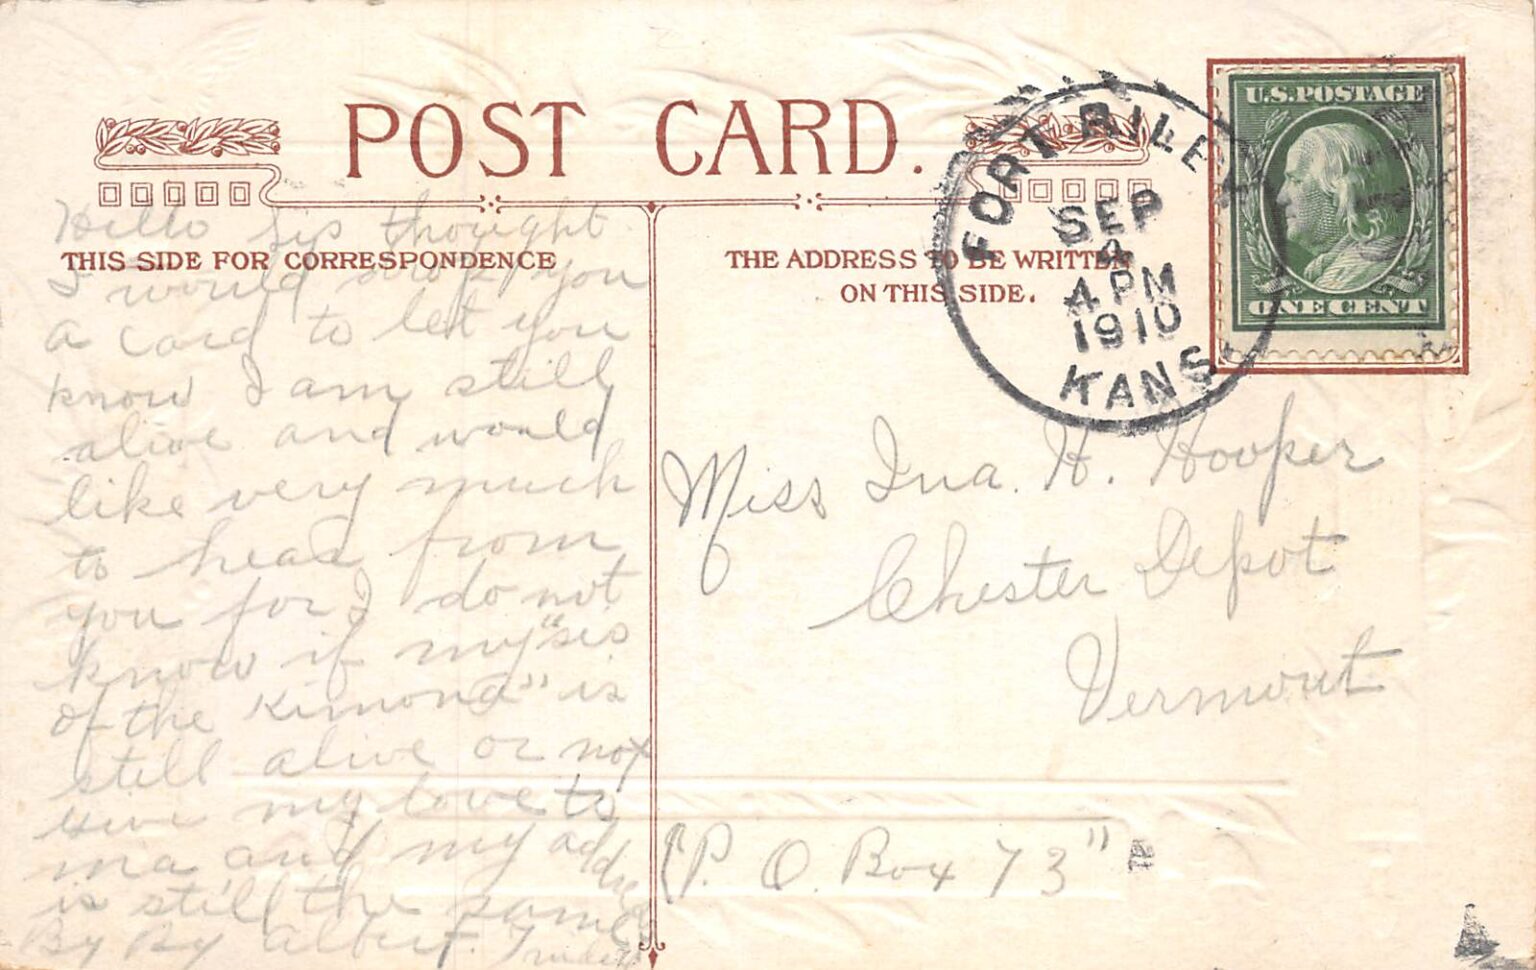 POST CARD.
THIS SIDE FOR CORRESPONDENCE
THE ADDRESS TO BE WRITTEN
ON THIS SIDE.
FORT RILEY
SEP
4
4 PM
1910
KANS.
U.S. POSTAGE
ONE CENT
Hello Sis thought
I would drop you
a card to let you
know I am still
alive and would
like very much
to hear from
you for I do not
know if my "sis
of the Kimona" is
still alive or not
Give my love to
ma and my address
is still the same
By By Albert F.
Miss Ina. H. Hooper
Chester Depot
Vermont
"P. O. Box 73"